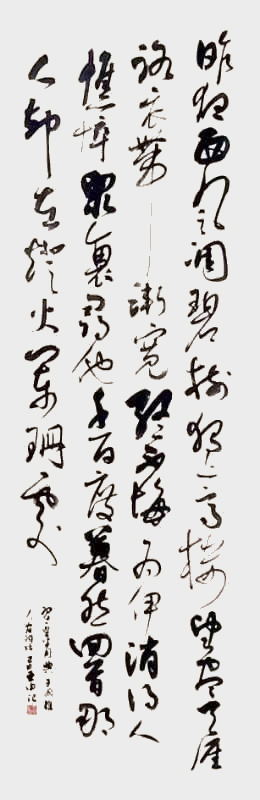 昨夜西風凋碧樹獨上高樓望盡天涯
路衣帶漸寬終不悔為伊消得人
憔悴眾裏尋他千百度驀然回首那
人却在燈火闌珊處
王國維
人間詞話